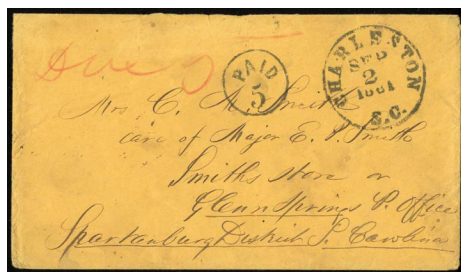 Due 5
PAID
5
CHARLESTON
SEP
2
1861
S.C.
Mrs. C. M. Smith
care of Major E. P. Smith
Smiths store or
Glenn Springs P. Office
Spartanburg District S. Carolina